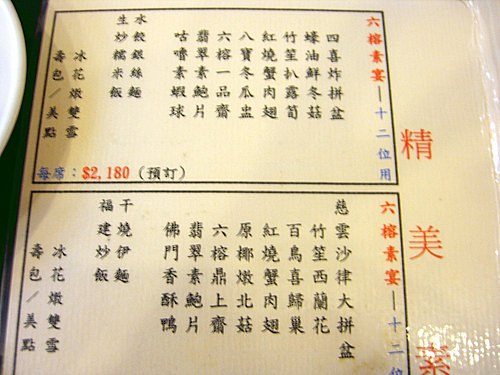 精美素
六榕素宴—十二位用
四喜炸拼盆
蠔油鮮冬菇
竹笙扒露筍
紅燒蟹肉翅
八寶冬瓜盅
六榕一品齋
翡翠素鮑片
咕嚕素蝦球
水餃銀絲麵
生炒糯米飯
冰花燉雙雪
壽包／美點
每席：$2,180 (預訂)
六榕素宴—十二位
慈雲沙律大拼盆
竹笙西蘭花
百鳥喜歸巢
紅燒蟹肉翅
原椰燉北菇
六榕鼎上齋
翡翠素鮑片
佛門香酥鴨
干燒伊麵
福建炒飯
冰花燉雙雪
壽包／美點